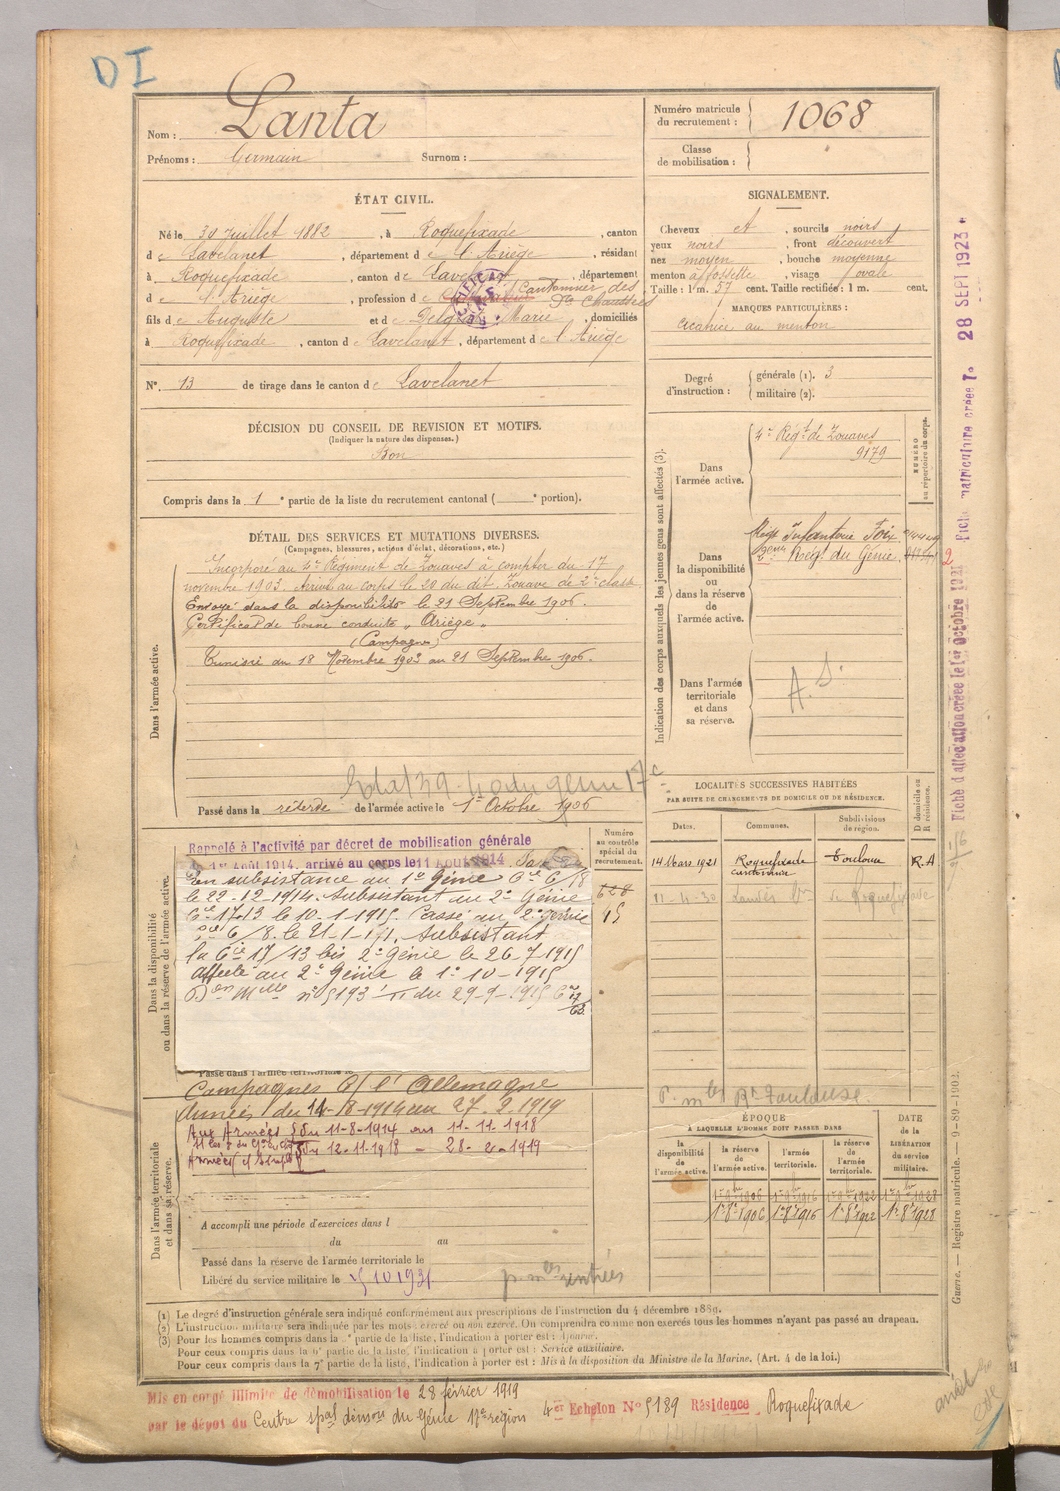 DI
Nom : Lanta
Prénoms : Germain Surnom :
Numéro matricule du recrutement : 1068
Classe de mobilisation :
ÉTAT CIVIL.
Né le 30 Juillet 1882, à Roquefixade, canton
de Lavelanet, département de l'Ariège, résidant
à Roquefixade, canton de Lavelanet, département
de l'Ariège, profession de Cultivateur Cantonnier des Pts Chaussées
fils de Auguste et de Marie, domiciliés
à Roquefixade, canton de Lavelanet, département de l'Ariège
N° 13 de tirage dans le canton de Lavelanet
SIGNALEMENT.
Cheveux et, sourcils noirs
yeux noirs, front découvert
nez moyen, bouche moyenne
menton à fossette, visage ovale
Taille : 1 m. 57 cent. Taille rectifiée : 1 m. cent.
MARQUES PARTICULIÈRES :
cicatrice au menton
Degré d'instruction : générale (1). 3
militaire (2).
DÉCISION DU CONSEIL DE REVISION ET MOTIFS.
(Indiquer la nature des dispenses.)
Bon
Compris dans la 1e partie de la liste du recrutement cantonal ( e portion).
DÉTAIL DES SERVICES ET MUTATIONS DIVERSES.
(Campagnes, blessures, actions d'éclat, décorations, etc.)
Dans l'armée active.
Incorporé au 4e Régiment de Zouaves à compter du 17
novembre 1903. Arrivé au corps le 20 du dit. Zouave de 2e classe
Envoyé dans la disponibilité le 21 Septembre 1906.
Certificat de bonne conduite "Ariège"
(Campagnes)
Tunisie du 18 Novembre 1903 au 21 Septembre 1906.
Passé dans la réserve de l'armée active le 1er Octobre 1906
Indication des corps auxquels les jeunes gens sont affectés (3).
NUMÉRO au répertoire du corps.
Dans l'armée active.
4e Régt de Zouaves
9179
Dans la disponibilité ou dans la réserve de l'armée active.
Régt Infanterie Foix
2e Rég. du Génie
Dans l'armée territoriale et dans sa réserve.
A. S.
Dans la disponibilité ou dans la réserve de l'armée active.
Numéro au contrôle spécial du recrutement.
628
45
Rappelé à l'activité par décret de mobilisation générale
du 1er Août 1914, arrivé au corps le 11 AOUT 1914
En subsistance au 1e Génie Cie 6/8
le 22-12-1914. Subsistant au 2e Génie
Cie 17/3 le 10-1-1915. Passé au 2e Génie
Cie 6/8. le 21-1-15. Subsistant
la Cie 17/13 bis 2e Génie le 26.7.1915
affecté au 2e Génie le 1er 10-1915
Don Mlle n° 5193 du 29-9-1915
Passé dans l'armée territoriale le
Campagnes C/ l'Allemagne
Années du 11-8-1914 au 27.2.1919
Aux Armées du 11-8-1914 au 11-11-1918
du 12-11-1918 - 28-2-1919
Dans l'armée territoriale et dans sa réserve.
A accompli une période d'exercices dans l
du au
Passé dans la réserve de l'armée territoriale le
Libéré du service militaire le 5 10 1931
LOCALITÉS SUCCESSIVES HABITÉES
PAR SUITE DE CHANGEMENTS DE DOMICILE OU DE RÉSIDENCE.
Dates. Communes. Subdivisions de région. D domicile ou R résidence.
14 Mars 1921 Roquefixade cantonnier Toulouse R.A
11-4-30
Toulouse.
ÉPOQUE
À LAQUELLE L'HOMME DOIT PASSER DANS
DATE de la LIBÉRATION du service militaire.
la disponibilité de l'armée active. la réserve de l'armée active. l'armée territoriale. la réserve de l'armée territoriale.
1er 9bre 1906 1er 9bre 1916 1er 9bre 1922 1er 9bre 1928
1er 8e 1906 1er 8e 1916 1er 8e 1922 1er 8e 1928
(1) Le degré d'instruction générale sera indiqué conformément aux prescriptions de l'instruction du 4 décembre 1889.
(2) L'instruction militaire sera indiquée par les mots : exercé ou non exercé. On comprendra comme non exercés tous les hommes n'ayant pas passé au drapeau.
(3) Pour les hommes compris dans la e partie de la liste, l'indication à porter est : Ajourné.
Pour ceux compris dans la 6e partie de la liste, l'indication à porter est : Service auxiliaire.
Pour ceux compris dans la 7e partie de la liste, l'indication à porter est : Mis à la disposition du Ministre de la Marine. (Art. 4 de la loi.)
Mis en congé illimité de démobilisation le 28 février 1919
par le dépôt du Centre spal démon du Génie 17e région 4er Echelon N° 5189 Résidence Roquefixade
Fiche d'affectation créée le 1er Octobre 1921
Fiche matriculaire créée le 28 SEPT 1923
Guerre. — Registre matricule. — 9-89-1902.